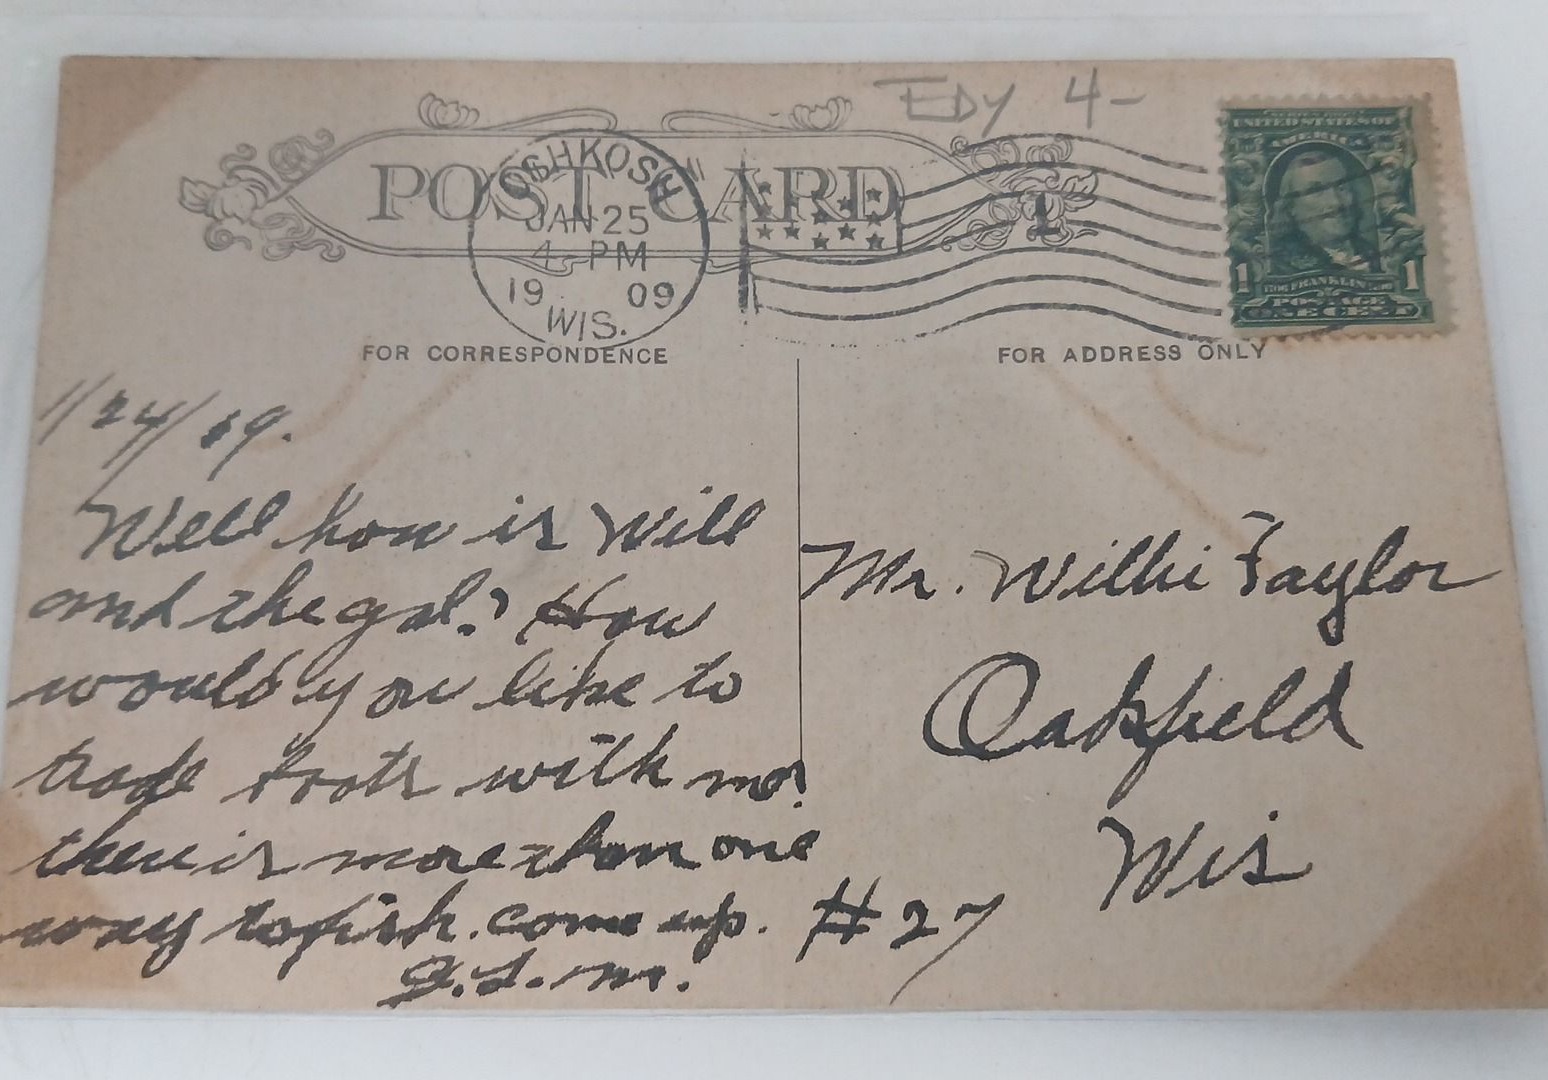 EDY 4-
POST CARD
OSHKOSH
JAN 25
4 - PM
19 09
WIS.
1
UNITED STATES OF
AMERICA
1 FRANKLIN 1
POSTAGE
ONE CENT
FOR CORRESPONDENCE
FOR ADDRESS ONLY
1/24/09.
Well how is Will
and the gal? How
would you like to
trade boots with me?
there is more than one
way to fish. come up.
#27
Mr. Willie Taylor
Oakfield
Wis